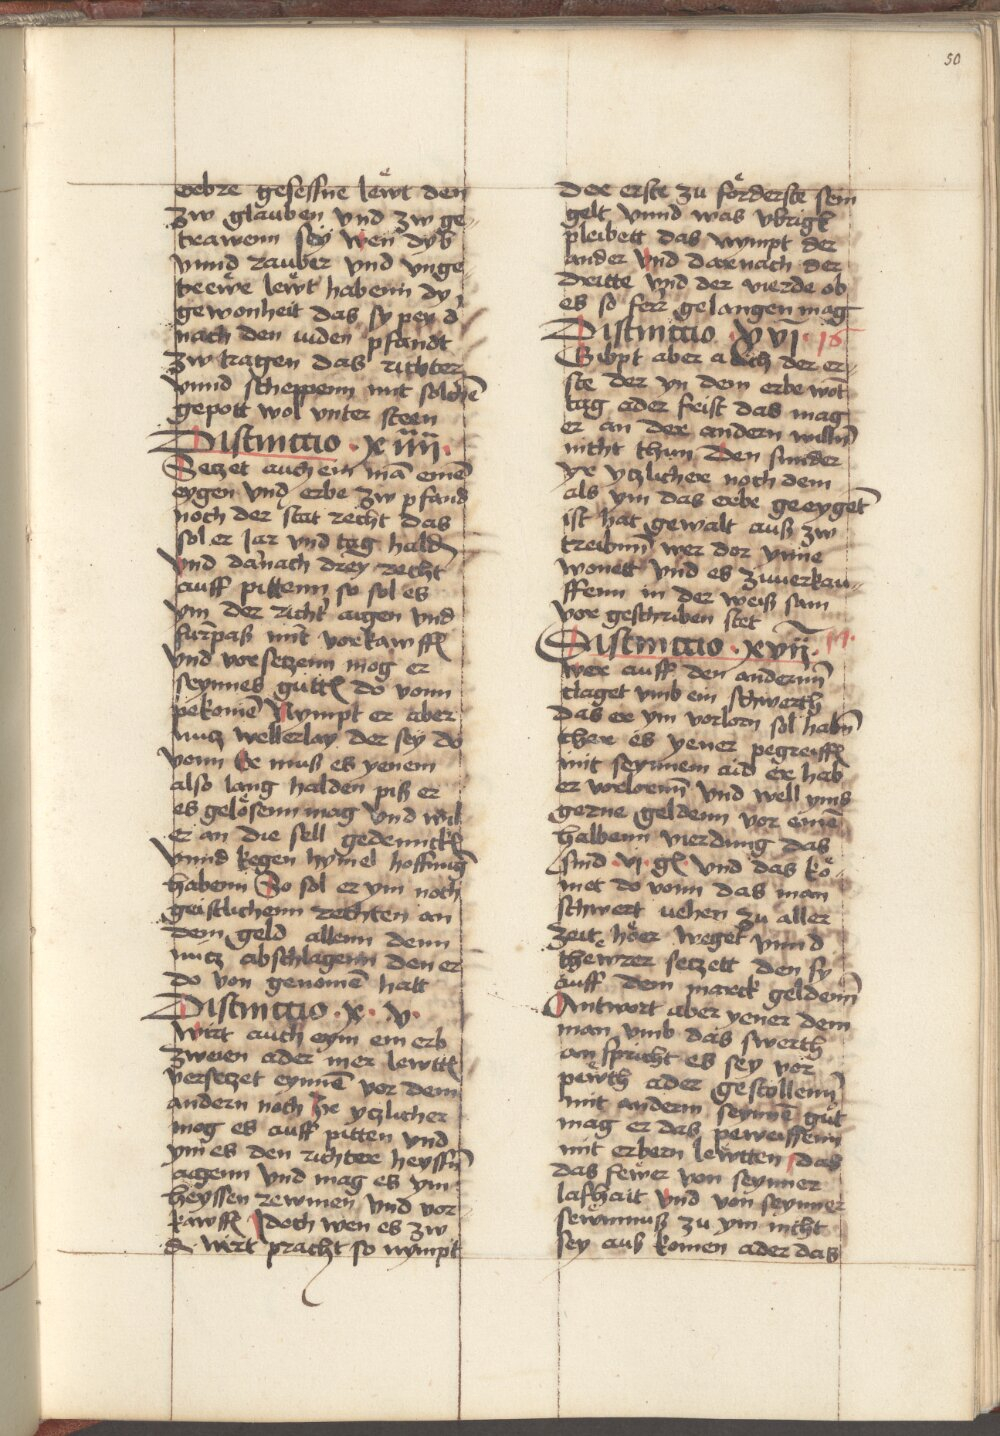 50
erbre gesessne lewt den
zw glauben vnd zw ge-
trawenn sey wen dyb
vnnd rauber vnd vnge
trewe lewt habenn dy
gewonheit das sy pey d'
nach den iuden pfandt
zw tragen das richter
vnnd scheppenn mit solchē
gepott wol vnter steen
Distinctio . xiiii .
Setzet auch ein mā einē
eygen vnd erbe zw pfand
noch der stat recht das
sol er Jar vnd tag hald
vnd darnach drey recht
auff pittenn so sol es
ym der richt' aigen vnd
furpaß mit vorkawff
vnd vorsetzenn mog er
seynnes gutt do vonn
pekomē Nympt er aber
nutz wellerlay der sey do
vonn Er muß es yenem
also lang halden piß er
es gelösenn mag vnd wil
er an die sell gedennck
vnnd kegen hymel hoffnung
habenn So sol er ym noch
geistlichenn rechten an
dem geld allenn denn
nutz abschlagenn den er
do von genomē hatt
Distinctio . x . v .
Wirt auch eym ein erb
zweien ader mer lewtt
versetzet eynnē vor dem
andern noch Ir ytzlicher
mog es auff pitten vnd
ym es den richter heyssn
aigenn vnd mag es ym
heyssen rewmen vnd vor
kawff Idoch wen es zw
d. wirt pracht so nympt
der erste zu förderste sein
gelt vnnd was vbrigk
pleibett das nympt der
ander vnd darnach der
dritte vnd der vierde ob
es so ferr gelangen mag
Distinctio . xvi . 16
Gibpt aber auch der er-
ste der yn dem erbe wot
tag ader frist das mag
er an der andern willn
nicht thun Den sunder
yr ytzlicher noch dem
als ym das erbe geeyget
ist hat gewalt auß zw
treibnn wer dor ynne
wonett vnd es zuuerkau-
ffenn in der weiß sam
vor geschriben stet
Distinctio . xvii .
Wer auff den andernn
claget vmb ein schwerth
das er ym vorlorn sol habn
ther es yener pegreiff
mit seynnem aid er hab
er vorlorenn vnd well yms
gerne geldenn vor einē
halbenn vierdung das
sind . vi . g vnd das kö-
met do vonn das man
schwert vehen zu aller
zeit höer weget vnnd
thewrer setzett den sy
auff dem marck geldenn
Antwort aber yener dem
man vmb das swerth
an spricht es sey vor
pewth ader gestollenn
mit anderm seynnē gut
mag er das peweissenn
mit erbern lewtten das
das fewer von seynner
lashait vnd von seynner
sewmnuß zu ym nicht
sey auß komen ader das